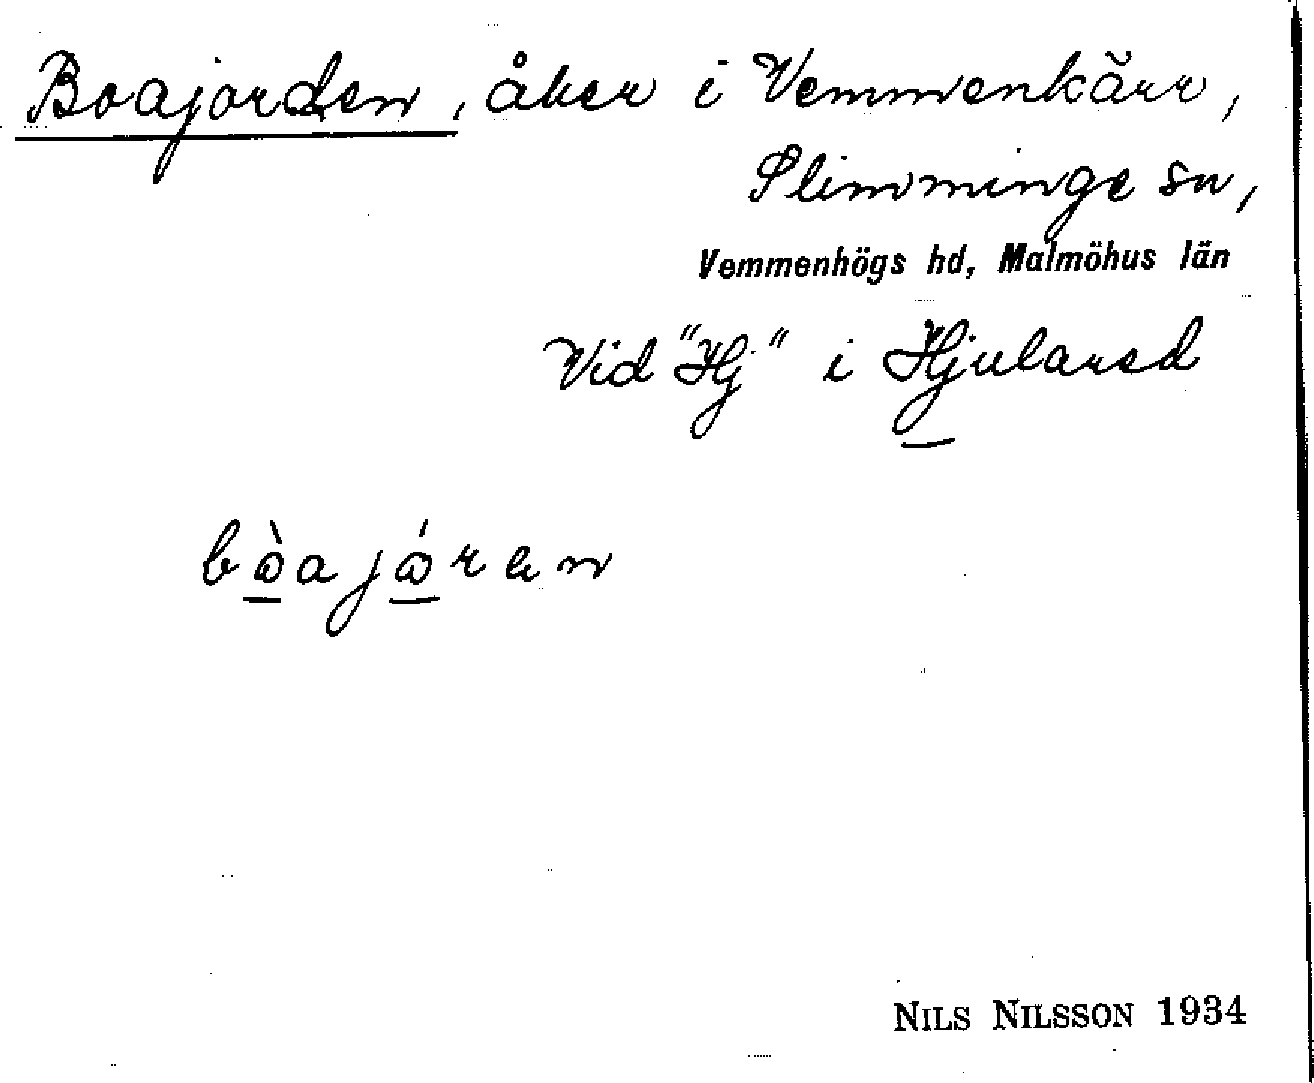 Boajorden, åker i Vemmenkärr,
Slimminge sn,
Vemmenhögs hd, Malmöhus län
Vid "Hj" i Hjularöd
bòajóran
NILS NILSSON 1934